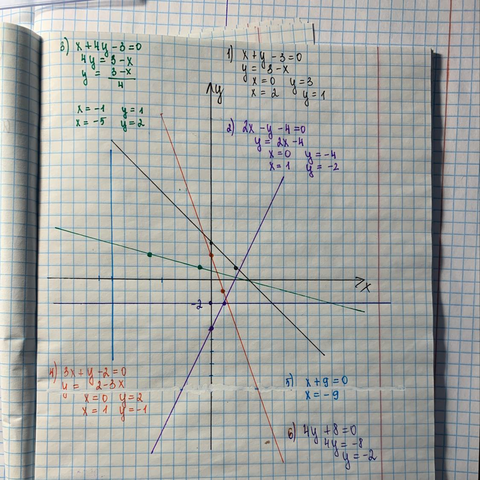 3) x + 4y - 3 = 0
4y = 3 - x
y = 3-x
4
x = -1 y = 1
x = -5 y = 2
1) x + y - 3 = 0
y = 3 - x
x = 0 y = 3
x = 2 y = 1
y
2) 2x - y - 4 = 0
y = 2x - 4
x = 0 y = -4
x = 1 y = -2
x
-2
4) 3x + y - 2 = 0
y = 2 - 3x
x = 0 y = 2
x = 1 y = -1
5) x + 9 = 0
x = -9
6) 4y + 8 = 0
4y = -8
y = -2